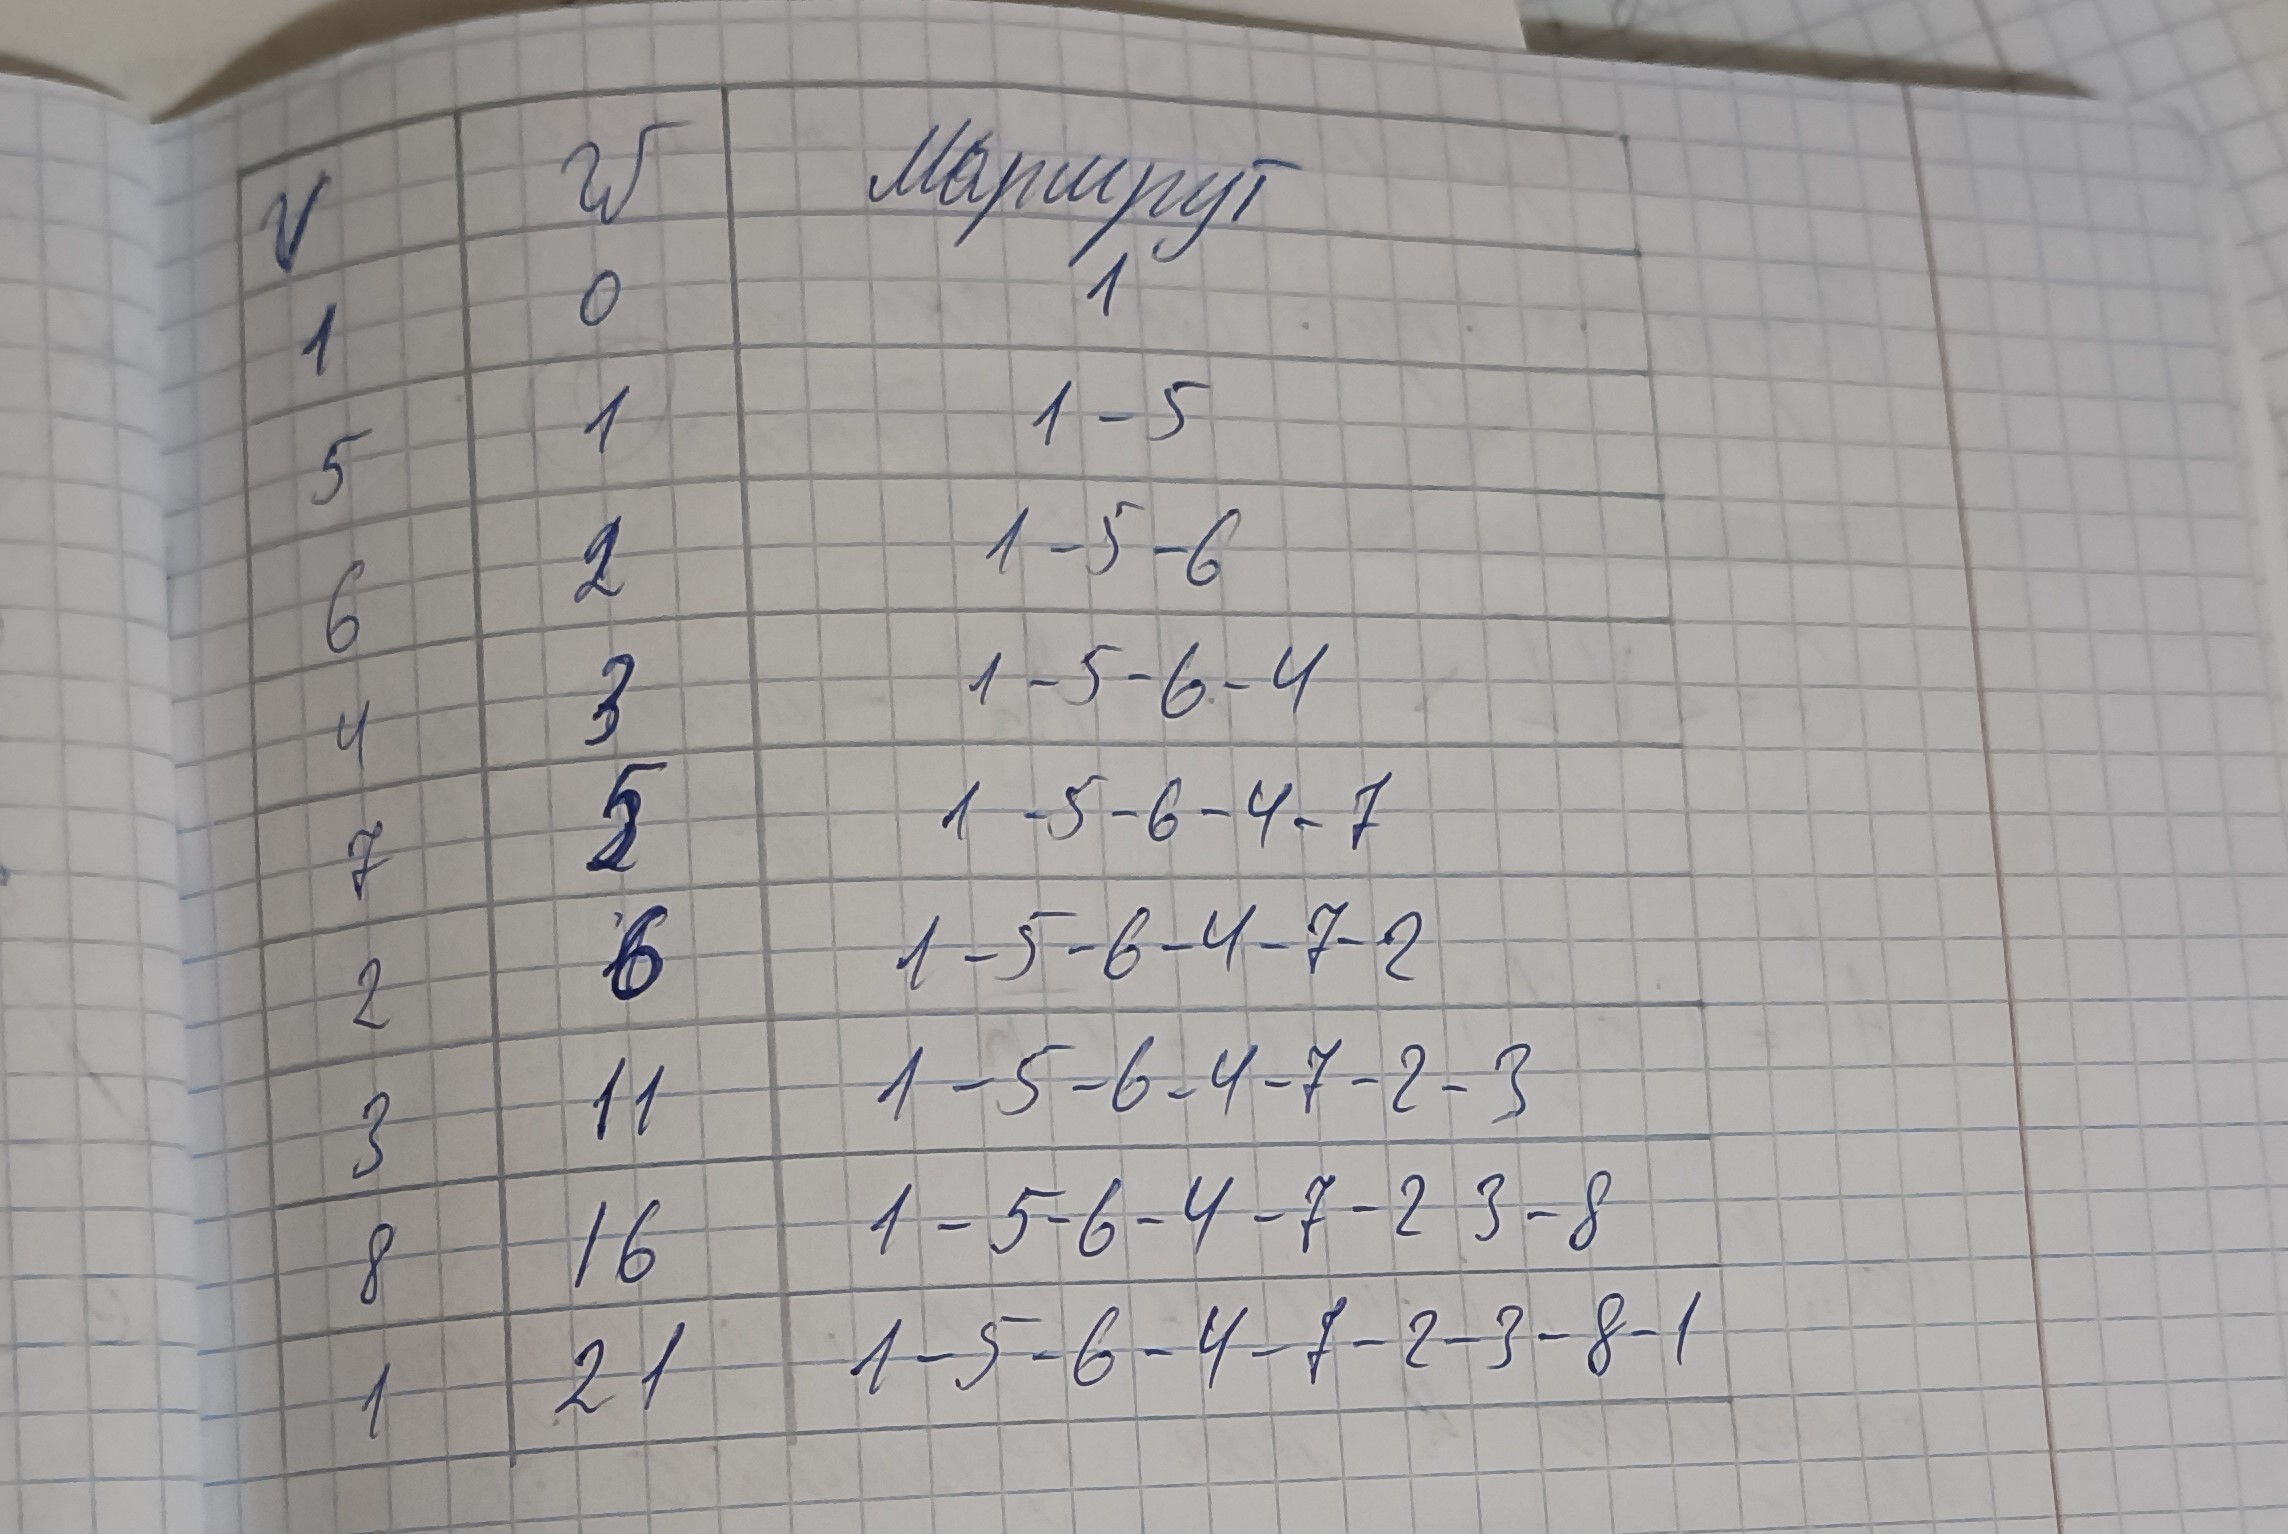 V W Маршрут
1 0 1
5 1 1-5
6 2 1-5-6
4 3 1-5-6-4
7 5 1-5-6-4-7
2 6 1-5-6-4-7-2
3 11 1-5-6-4-7-2-3
8 16 1-5-6-4-7-2 3-8
1 21 1-5-6-4-7-2-3-8-1